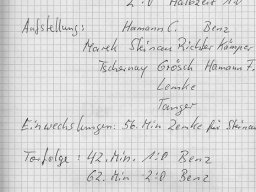 2:0 Halbzeit 1:0
Aufstellung: Hamann C. Benz
Marek Steinau Richter Kämper
Tschernay Grösch Hamann F.
Lemke
Tanger
Einwechslungen: 56. Min Zenke für Steinau
Torfolge: 42. Min. 1:0 Benz
62. Min 2:0 Benz